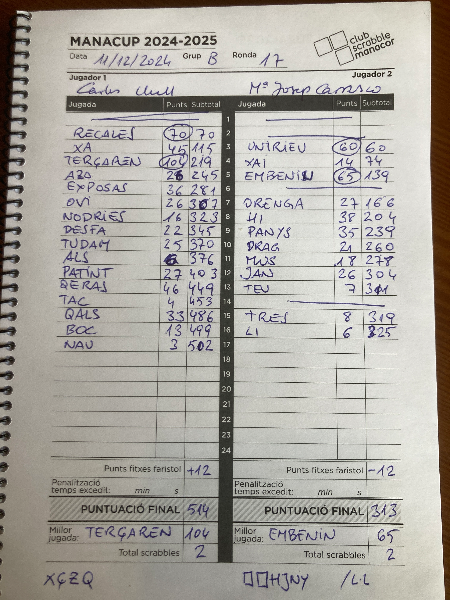 MANACUP 2024-2025
club scrabble manacor
Data 11/12/2024 Grup B Ronda 17
Jugador 1 Jugador 2
Mª Josep Carrasco
Jugada Punts Subtotal Jugada Punts Subtotal
1
RECALES 70 70 2
XA 45 115 3 UNIRIEU 60 60
TERÇAREN 104 219 4 XAI 14 74
AZO 26 245 5 EMBENIN 65 139
EXPOSAS 36 281 6
OVI 26 307 7 DRENGA 27 166
NODRIES 16 323 8 HI 38 204
DESFA 22 345 9 PANYS 35 239
TUDAM 25 370 10 DRAG 21 260
ALS 6 376 11 MUS 18 278
PATINT 27 403 12 JAN 26 304
QERAS 46 449 13 TEU 7 311
TAC 4 453 14
QALS 33 486 15 TRES 8 319
BOC 13 499 16 LI 6 325
NAU 3 502 17
18
19
20
21
22
23
24
Punts fitxes faristol +12 Punts fitxes faristol -12
Penalització temps excedit: min s Penalització temps excedit: min s
PUNTUACIÓ FINAL 514 PUNTUACIÓ FINAL 313
Millor jugada: TERÇAREN 104 Millor jugada: EMBENIN 65
Total scrabbles 2 Total scrabbles 2
XÇZQ HJNY /L·L